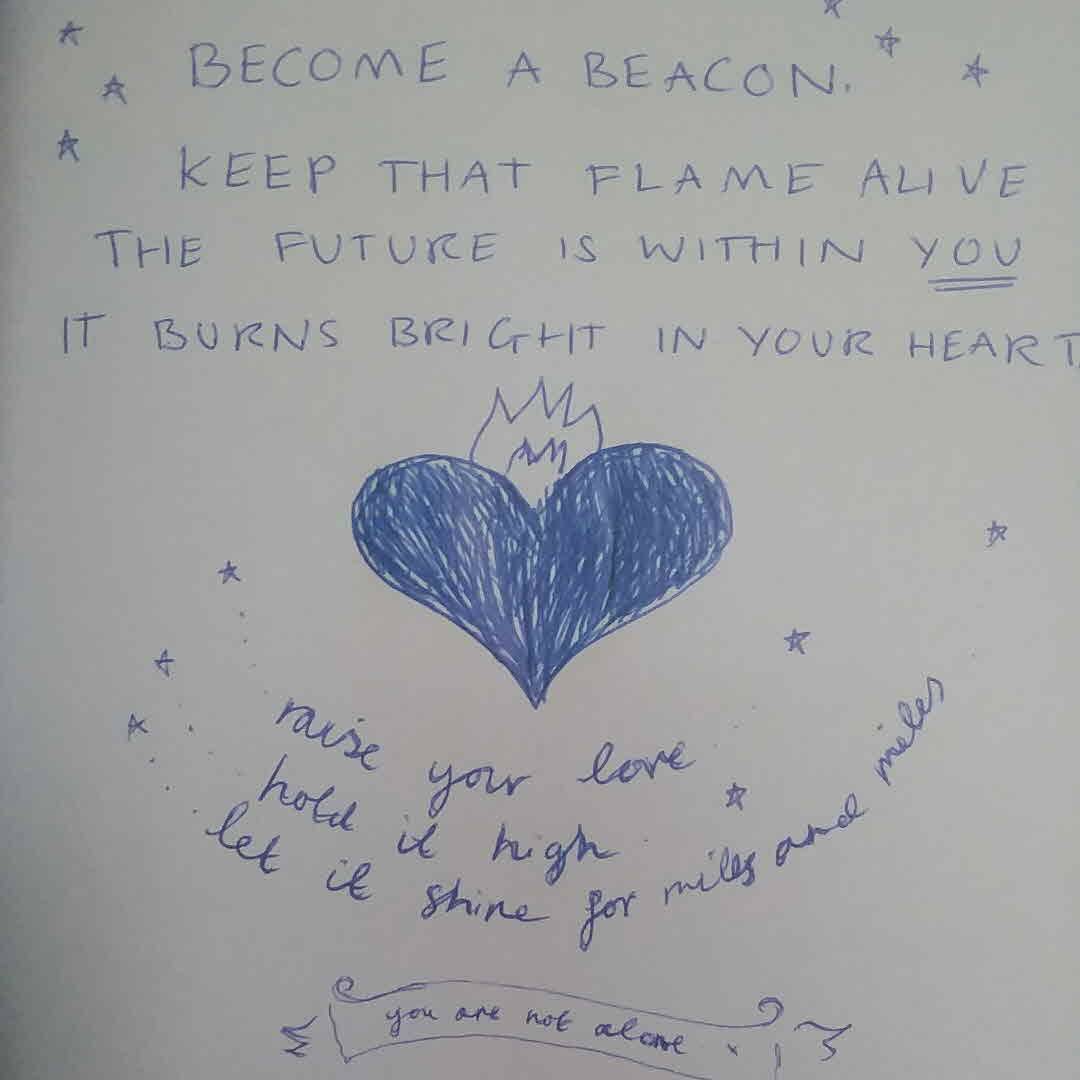 BECOME A BEACON.
KEEP THAT FLAME ALIVE
THE FUTURE IS WITHIN YOU
IT BURNS BRIGHT IN YOUR HEART,
raise your love
hold it high
let it shine for miles and miles
you are not alone